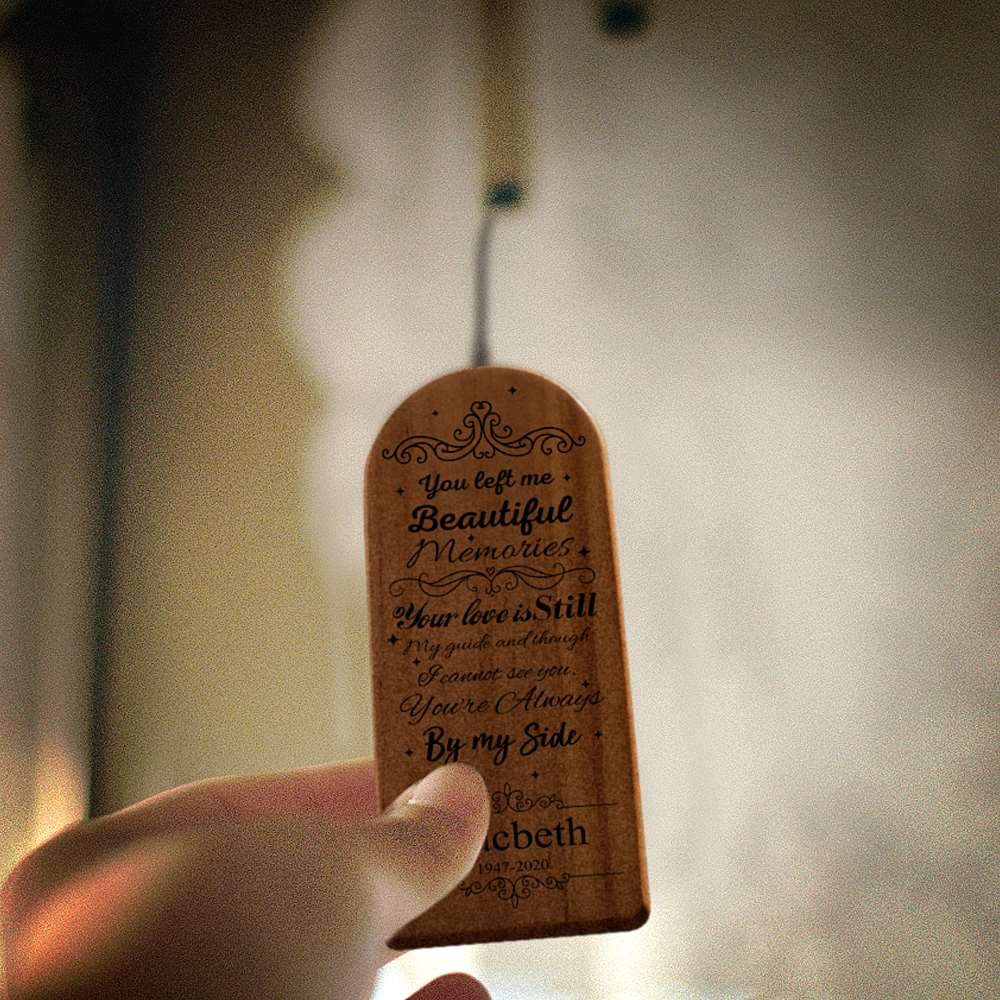 You left me
Beautiful
Memories
Your love is Still
My guide and though
I cannot see you.
You're Always
By my Side
cbeth
1947-2020